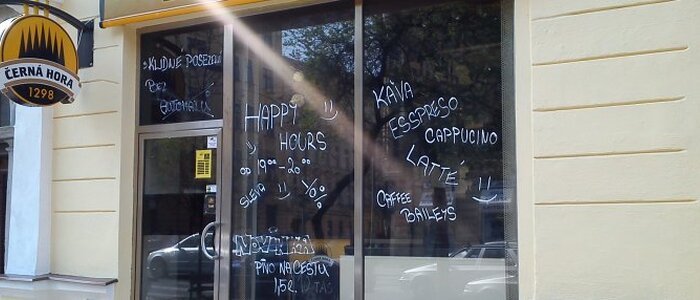 ČERNÁ HORA
1298
KLIDNÉ POSEZENÍ
BEZ
AUTOMATU
HAPPY
HOURS
OD 19⁰⁰-20⁰⁰
SLEVA
%
NOVINKA
PIVO NA CESTU
1,5L
KÁVA
ESSPRESO
CAPPUCINO
LATTÉ
CAFFEE
BAILEYS